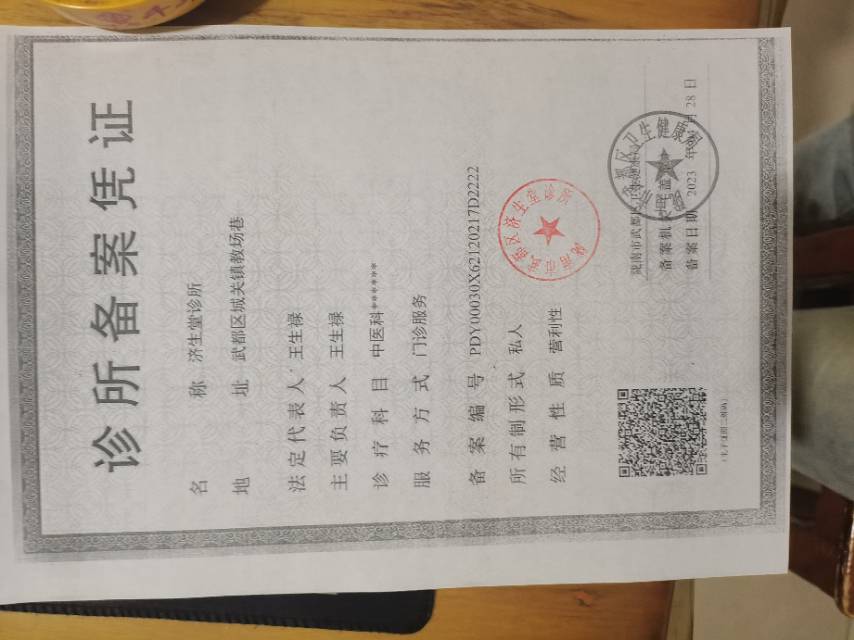 诊所备案凭证
名 称 济生堂诊所
地 址 武都区城关镇教场巷
法定代表人 王生禄
主要负责人 王生禄
诊疗科目 中医科******
服务方式 门诊服务
备案编号 PDY00030X62120217D2222
所有制形式 私人
经营性质 营利性
武都区济生堂诊所
武都区卫生健康局
备案机关
备案日期 2023 年 月 28 日